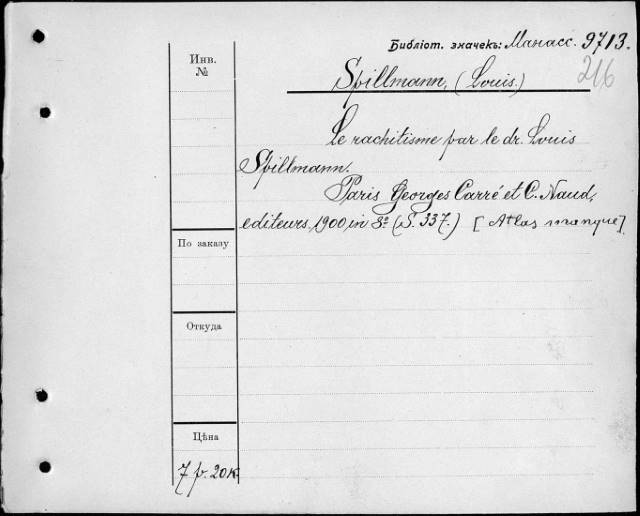 Библіот. значекъ: Манасс. 9713.
216
Инв.
№
Spillmann, (Louis.)
Le rachitisme par le dr. Louis
Spillmann.
Paris Georges Carré et C. Naud,
editeurs, 1900 in 8º (S. 337.) [Atlas manque]
По заказу
Откуда
Цѣна
7 р. 20 к